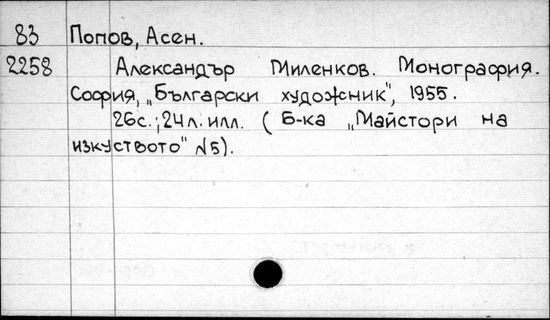 83 Попов, Асен.
2258 Александър Миленков. Монография.
София, „Български художник", 1955.
26с.; 24л. илл. (Б-ка „Майстори на
изкуството" №5).